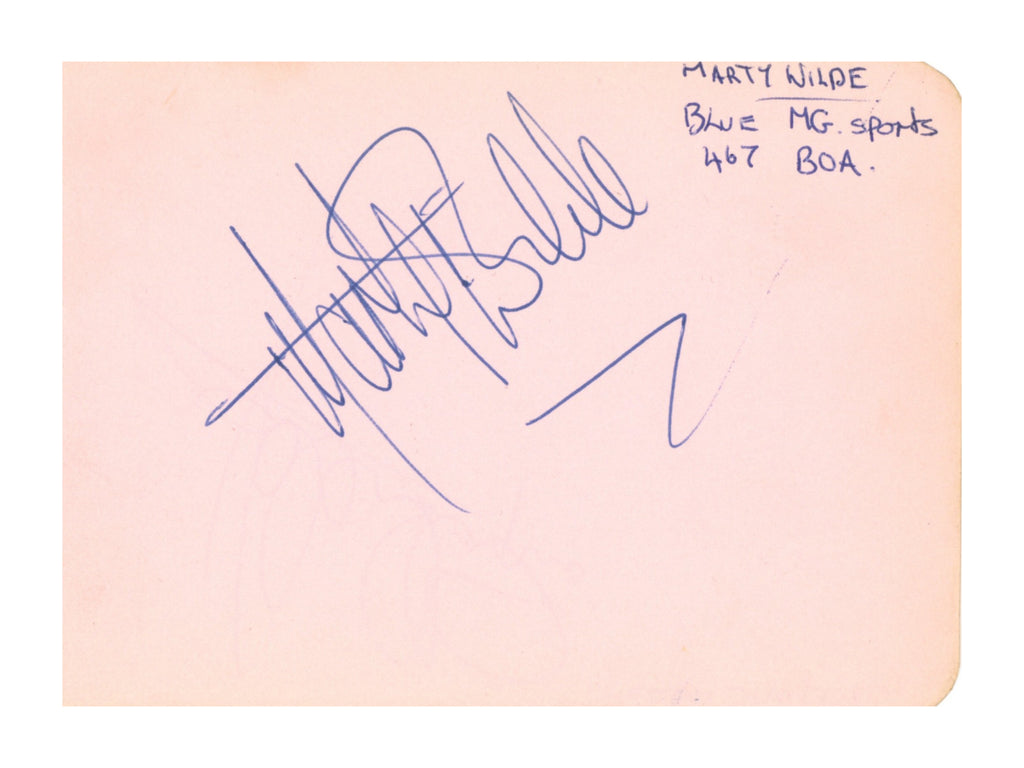 MARTY WILDE
BLUE MG. sports
467 BOA.
Marty Wilde